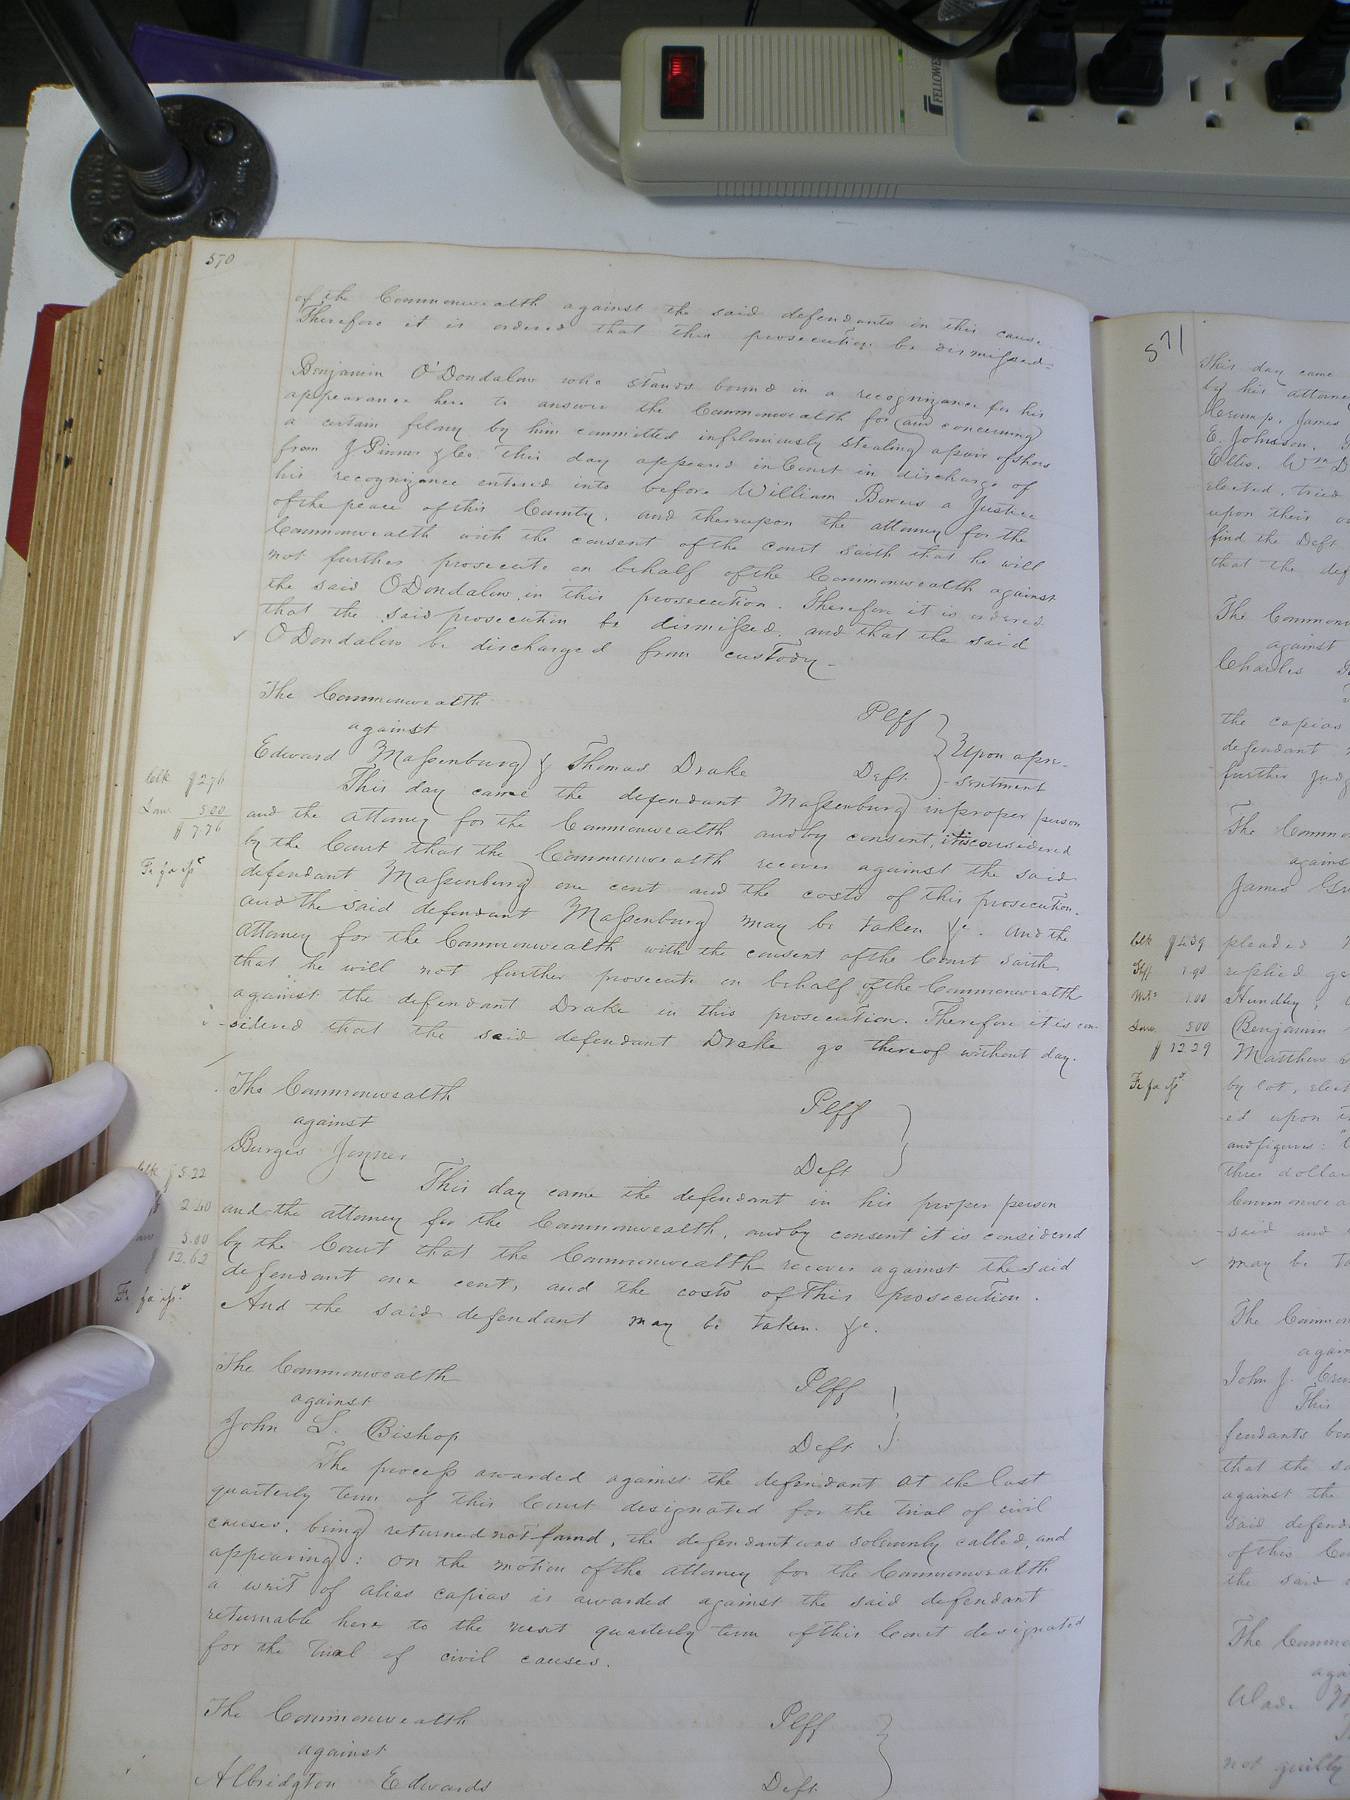 FELLOWES
570
of the Commonwealth against the said defendants in this cause.
Therefore it is ordered that this prosecution be dismissed=
Benjamin O'Dondalow who stands bound in a recognizance for his
appearance here to answer the Commonwealth for and concerning
a certain felony by him committed in feloniously stealing a pair of shoes
from J Pinner & Co. this day appeared in Court in discharge of
his recognizance entered into before William Bowers a Justice
of the peace of this County, and thereupon the attorney for the
Commonwealth with the consent of the court saith that he will
not further prosecute on behalf of the Commonwealth against
the said O'Dondalow, in this prosecution. Therefore it is ordered
that the said prosecution be dismissed, and that the said
O'Dondalow be discharged from custody-
The Commonwealth Plff
against
Edward Massenburg & Thomas Drake Deft.
Upon a pre-
-sentment
This day came the defendant Massenburg in proper person
and the attorney for the Commonwealth and by consent, it is considered
by the Court that the Commonwealth recover against the said
defendant Massenburg one cent and the costs of this prosecution.
and the said defendant Massenburg may be taken &c. And the
attorney for the Commonwealth with the consent of the Court saith
that he will not further prosecute on behalf of the Commonwealth
against the defendant Drake in this prosecution. Therefore it is con-
-sidered that the said defendant Drake go thereof without day.
Clk $2.76
Law. 5.00
$7.76
Fi fa isd
The Commonwealth Plff
against
Burges Joyner Deft
This day came the defendant in his proper person
and the attorney for the Commonwealth, and by consent it is considered
by the Court that the Commonwealth recover against the said
defendant one cent, and the costs of this prosecution.
And the said defendant may be taken. &c.
Clk $5.22
2.40
5.00
12.62
Fi fa isd
The Commonwealth Plff
against
John L. Bishop Deft
The process awarded against the defendant at the last
quarterly term of this Court designated for the trial of civil
causes, being returned not found, the defendant was solemnly called, and
appearing: on the motion of the attorney for the Commonwealth
a writ of alias capias is awarded against the said defendant
returnable here to the next quarterly term of this Court designated
for the trial of civil causes.
The Commonwealth Plff
against
Albridgton Edwards Deft
571
This day came
by his attorney
Crump, James
E. Johnson,
Ellis, Wm D
elected, tried
upon their
find the Deft
that the
The Common
against
Charles
the capias
defendant
further
The Common
against
James
pleaded
replied
Hundley,
Benjamin
Matthew
by lot, elect
-ed upon
and figures:
three dollar
Commonwea
said and
may be
Clk $4.39
Shff 1.90
1.00
Law. 5.00
$12.29
Fi fa isd
The Common
again
John J.
This
fendants
that the
against the
said defend
of this
the said
The Common
aga
Wlad.
not guilty